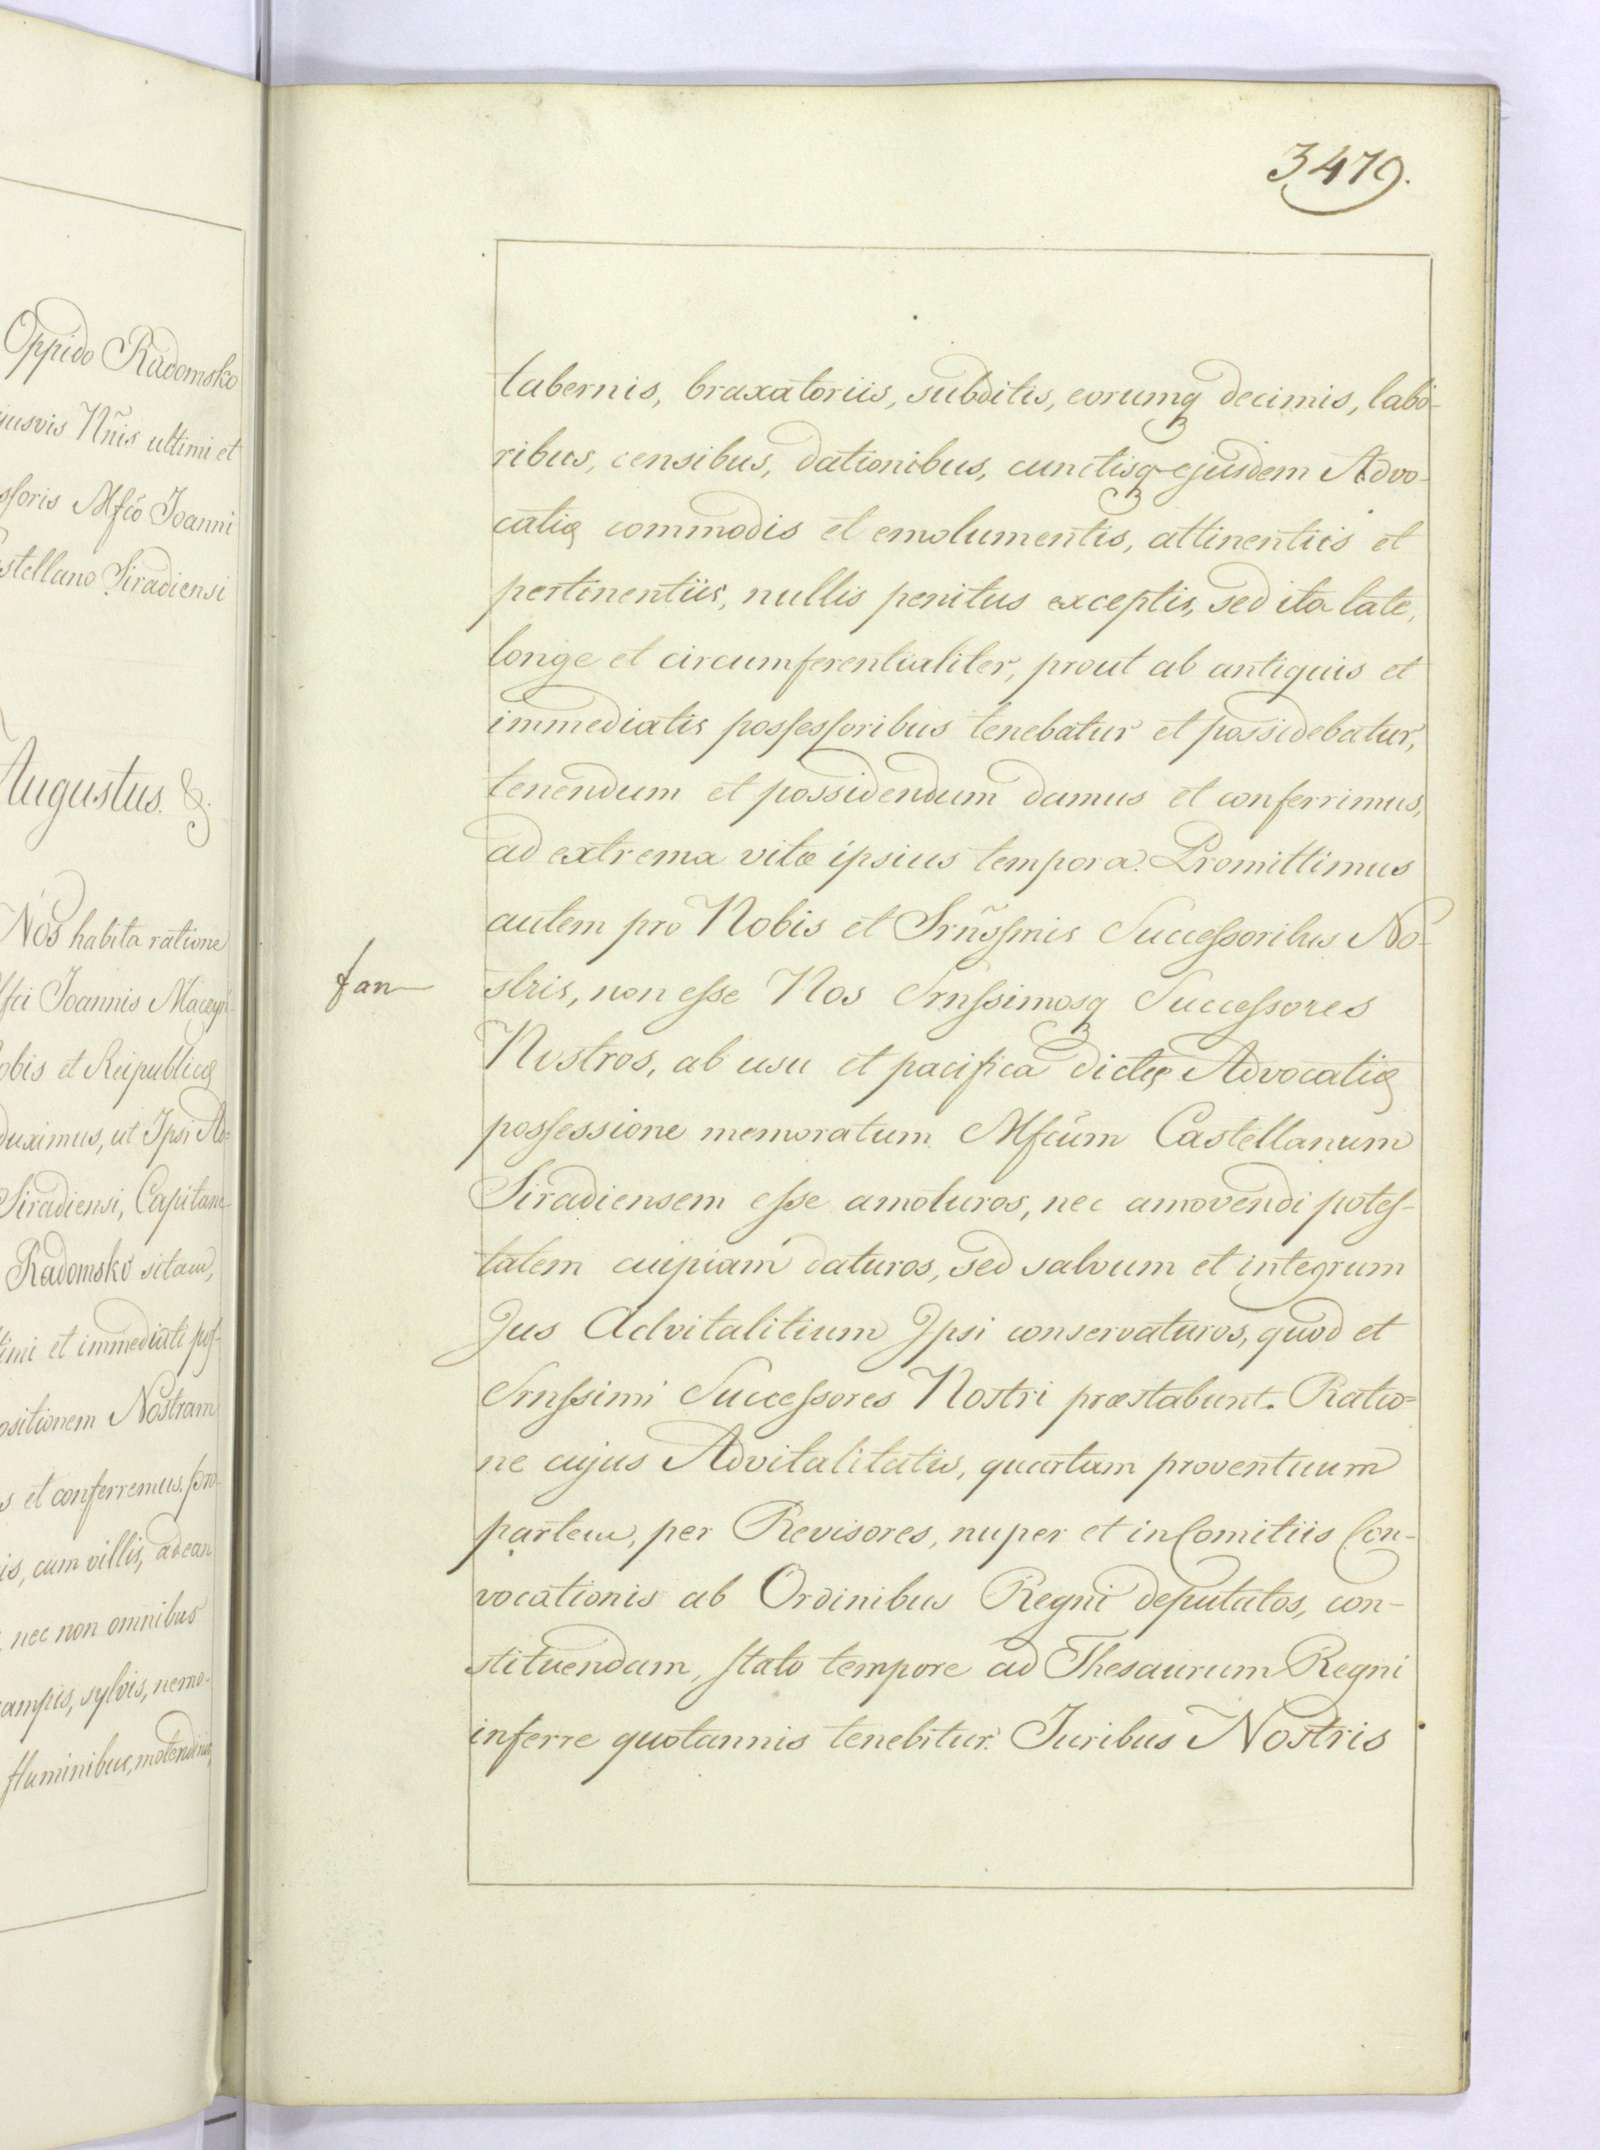 Oppido Radomsko
jusvis Nñis ultimi et
sforis Mfco Joanni
stellano Siradiensi
Augustus. &.
Nos habita ratione
Joannis
obis et Reipublicæ
duximus, ut Ipsi
Siradiensi, Capitane
Radomsko sitam,
timi et immediati pos-
ositionem Nostram
s et conferremus, pro-
is, cum villis,
nec non omnibus
campis, sylvis, nemo-
fluminibus,
3479.
tabernis, braxatoriis, subditis, eorumq decimis, labo-
ribus, censibus, dationibus, cunctisq ejusdem Advo-
catiæ commodis et emolumentis, attinentiis et
pertinentiis, nullis penitus exceptis, sed ita late,
longe et circumferentialiter, prout ab antiquis et
immediatis possessoribus tenebatur et possidebatur,
tenendum et possidendum damus et conferrimus,
ad extrema vitæ ipsius tempora. Promittimus
autem pro Nobis et Srñssmis Successoribus No-
stris, non esse Nos Srnssimosq Successores
fan
Nostros, ab usu et pacifica dictæ Advocatiæ
possessione memoratum Mfcum Castellanum
Siradiensem esse amoturos, nec amovendi potes-
tatem cuipiam daturos, sed salvum et integrum
Jus Advitalitium Ipsi conservaturos, quod et
Srnssimi Successores Nostri præstabunt. Ratio-
ne cujus Advitalitatis, quartam proventuum
partem, per Revisores, nuper et in Comitiis Con-
vocationis ab Ordinibus Regni deputatos, con-
stituendam, stato tempore ad Thesaurum Regni
inferre quotannis tenebitur. Juribus Nostris